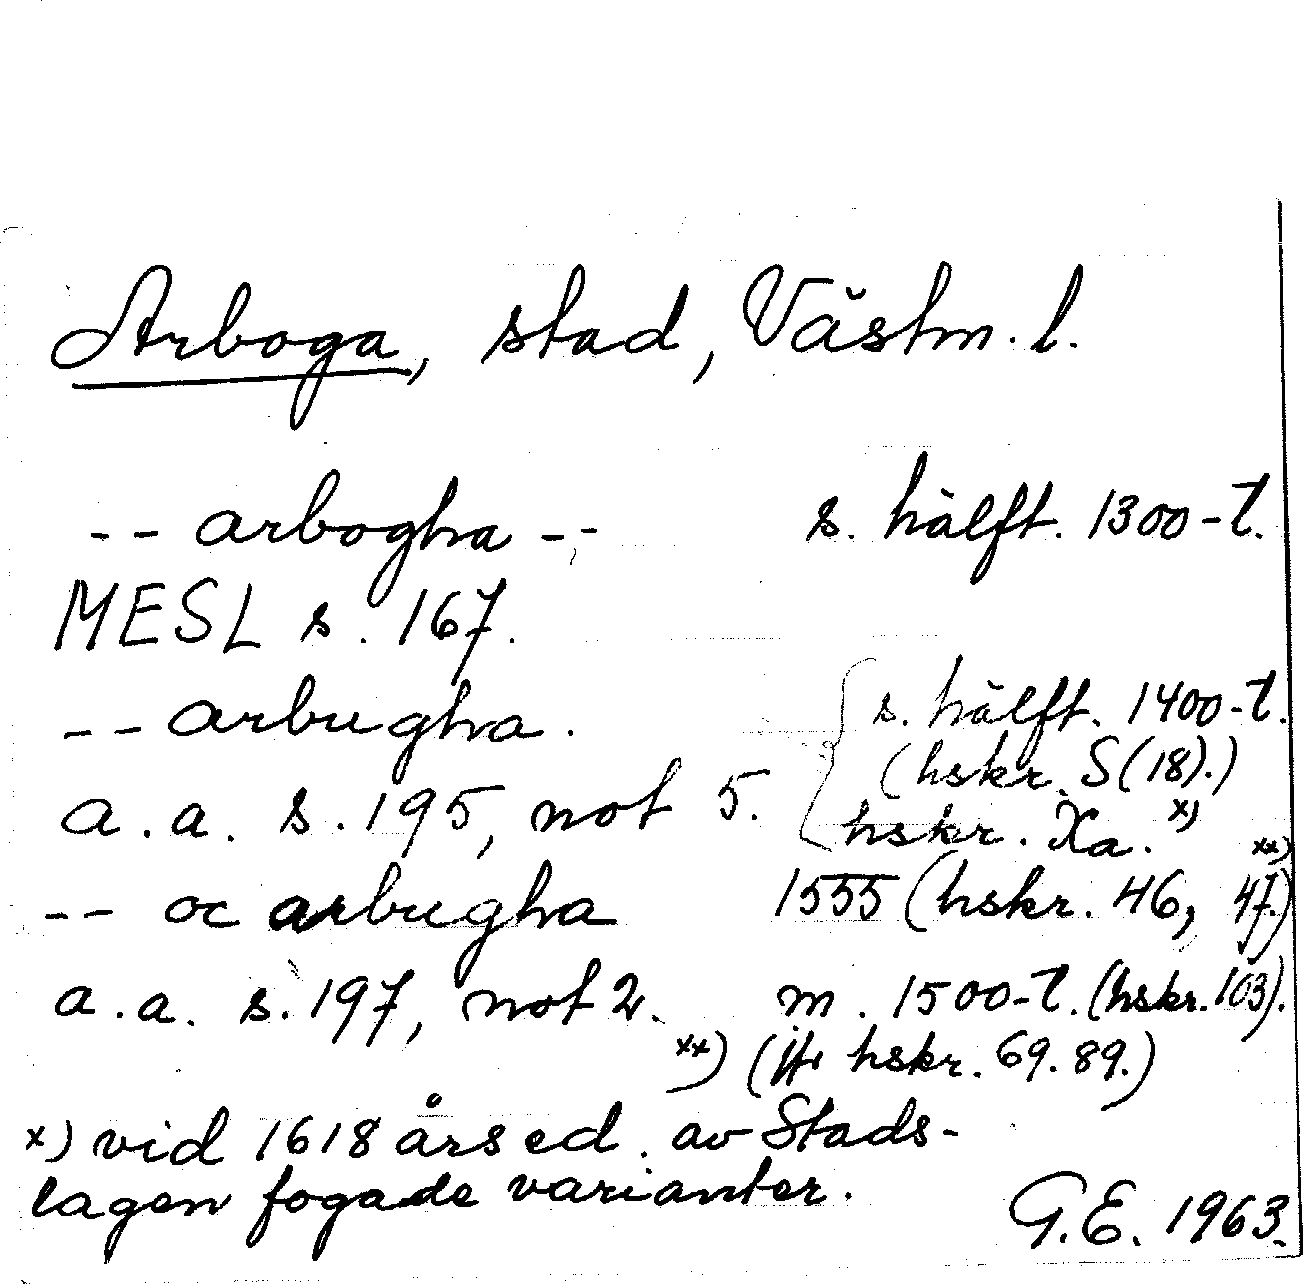 Arboga, stad, Västm. l.
-- arbogha -- s. hälft. 1300-t.
MESL s. 167.
-- arbugha. s. hälft. 1400-t.
(hskr. S(18).)
a.a. s. 195, not 5. hskr. Xa. x)
-- oc arbugha 1555 (hskr. 46, 47.) xx)
a.a. s. 197, not 2. m. 1500-t. (hskr. 103).
xx) ( hskr. 69. 89.)
x) vid 1618 års ed. av Stads-
lagen fogade varianter.
G.E. 1963.